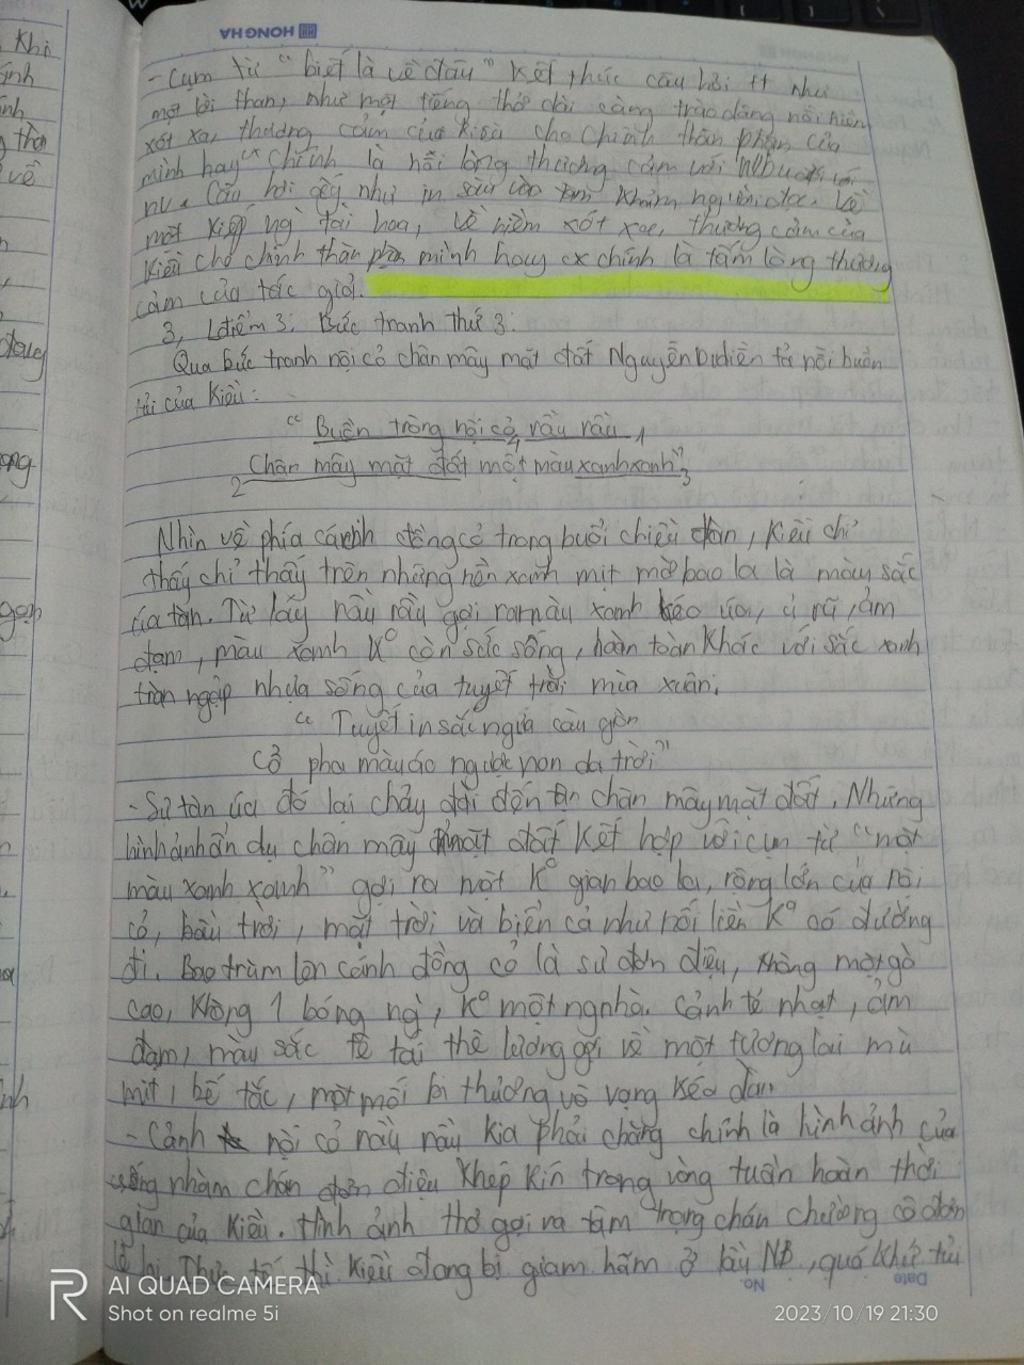 HONG HA
- Cụm từ "biết là về đâu" kết thúc câu hỏi tt như
một lời than, như một tiếng thở dài càng trào dâng nỗi niềm
xót xa, thương cảm của Kiều cho chính thân phận của
mình hay cx chính là nỗi lòng thương cảm với
nv. Câu hỏi ấy như in sâu vào khảm người đọc. Về
một kiếp ng tài hoa, về niềm xót xa, thương cảm của
Kiều cho chính thân phận mình hay cx chính là tấm lòng thương
cảm của tác giả.
3, Lđiểm 3: Bức tranh thứ 3:
Qua bức tranh nội cỏ chân mây mặt đất Nguyễn Du diễn tả nỗi buồn
tủi của Kiều:
"Buồn trông nội cỏ rầu rầu 1
2 Chân mây mặt đất một màu xanh xanh" 3
4
Nhìn về phía cánh đồng cỏ trong buổi chiều tàn, Kiều chỉ
thấy chỉ thấy trên những nền xanh mịt mờ bao la là màu sắc
úa tàn. Từ láy rầu rầu gợi ra màu xanh héo úa, ủ rũ, ảm
đạm, màu xanh K° còn sức sống, hoàn toàn khác với sắc xanh
tràn ngập nhựa sống của tuyết trời mùa xuân:
"Tuyết in sắc ngựa câu giòn
Cỏ pha màu áo nhuộm non da trời"
- Sự tàn úa đó lại chảy dài đến tận chân mây mặt đất. Những
hình ảnh ẩn dụ chân mây mặt đất kết hợp với cụm từ "một
màu xanh xanh" gợi ra một K° gian bao la, rộng lớn của nội
cỏ, bầu trời, mặt trời và biển cả như nối liền K° có đường
đi. Bao trùm lên cánh đồng cỏ là sự đơn điệu, không một gò
cao, không 1 bóng ng, K° một ng nhà. Cảnh tẻ nhạt, ảm
đạm, màu sắc tê tái thê lương gợi về một tương lai mù
mịt, bế tắc, một mối bi thương vô vọng kéo dài
- Cảnh nội cỏ rầu rầu kia phải chăng chính là hình ảnh của
sống nhàm chán đơn điệu khép kín trong vòng tuần hoàn thời
gian của Kiều. Hình ảnh thơ gợi ra tâm trạng chán chường cô đơn
lẻ loi Thực tế thì Kiều đang bị giam hãm ở lầu NB, quá khứ tủi
No.
Date
AI QUAD CAMERA
Shot on realme 5i
2023/10/19 21:30